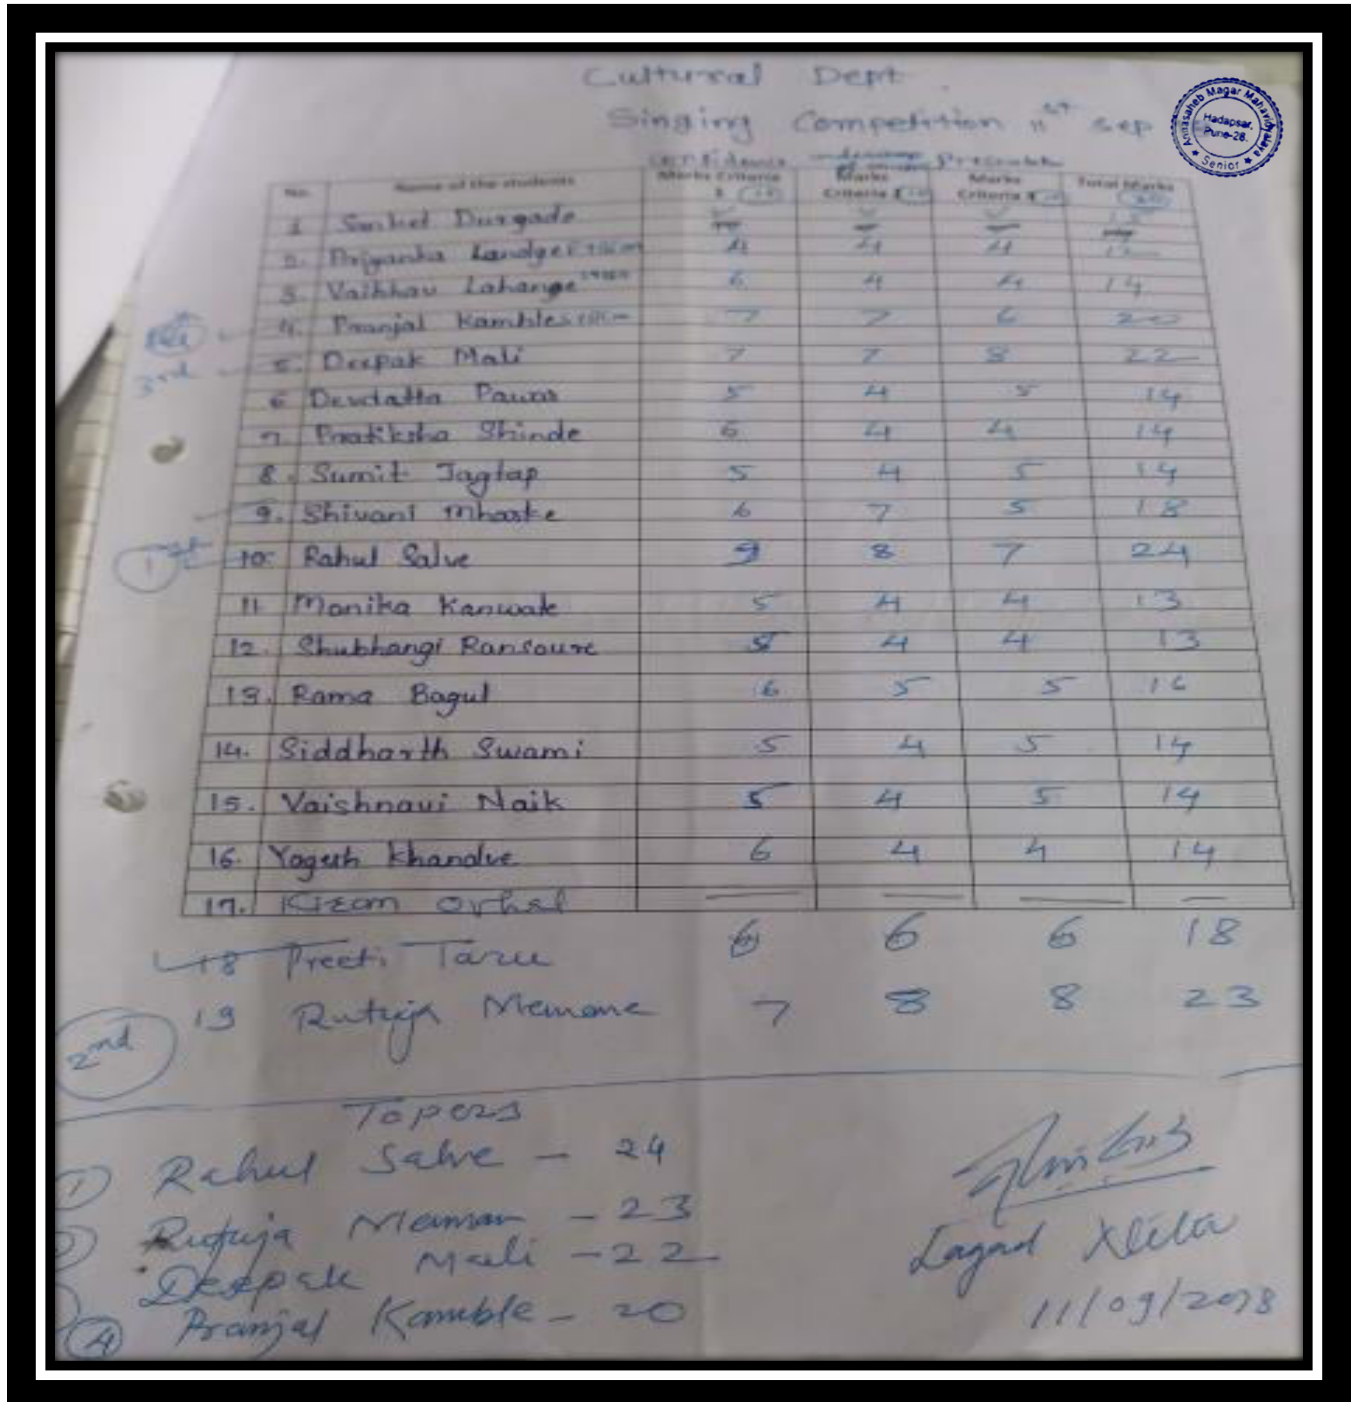 Cultural Dept.
Singing Competition 11st sep
Annasaheb Magar Mahavidyalaya
Hadapsar,
Pune-28.
★ Senior ★
confidence
No. Name of the students Marks Criteria 1 Marks Criteria Marks Criteria Total Marks
1 Durgade
2. Priyanka Landge 4 4 4 12
3. Vaibhav Lahange 6 4 4 14
4. Pranjal Kamble 7 7 6 20
3rd 5. Deepak Mali 7 7 8 22
6 Devdatta Pawar 5 4 5 14
7. Pratiksha Shinde 6 4 4 14
8. Sumit Jagtap 5 4 5 14
9. Shivani Mhaske 6 7 5 18
1st 10. Rahul Salve 9 8 7 24
11. Monika Kanwate 5 4 4 13
12. Shubhangi Ransoure 5 4 4 13
13. Rama Bagul 6 5 5 16
14. Siddharth Swami 5 4 5 14
15. Vaishnavi Naik 5 4 5 14
16. Yogesh Khandve 6 4 4 14
17. Kiran Ovhal — — — —
18 Preeti Taru 6 6 6 18
2nd 19 Rutuja Memane 7 8 8 23
Topers
1 Rahul Salve – 24
2 Rutuja Meman – 23
Deepak Mali – 22
4 Pranjal Kamble – 20
Lagad
11/09/2018